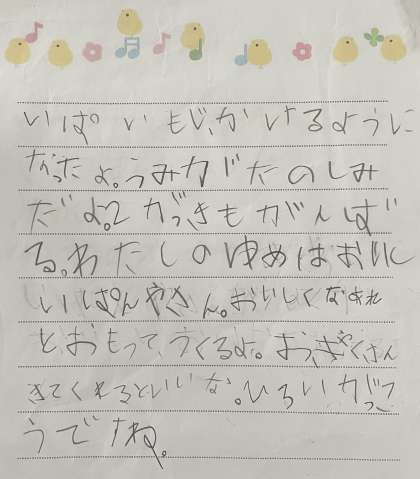 いぱいもじ、かけるように
なったよ。うみがたのしみ
だよ。2がっきもがんばす
る。わたしのゆめはおいし
いぱんやさん。おいしくなあれ
とおもって、うくるよ。おきゃくさん
きてくれるといいな。ひろいがっこ
うですね。